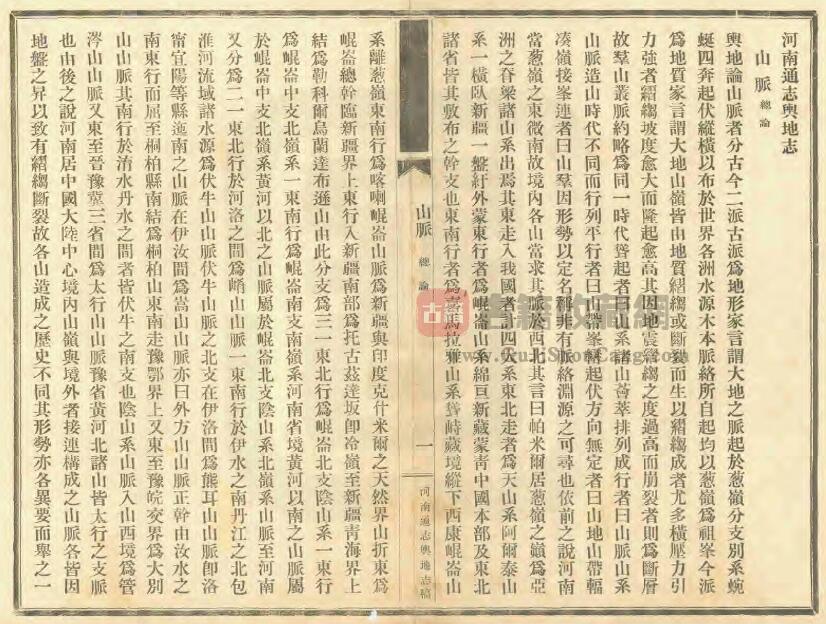 河南通志輿地志
山脈 總論
輿地論山脈者分古今二派古派爲地形家言謂大地之脈起於葱嶺分支別系蜿
蜒四奔起伏縱橫以布於世界各洲水源木本脈絡所自起均以葱嶺爲祖峯今派
爲地質家言謂大地山嶺皆由地質縐縐或斷裂而生以縐縐成者尤多橫壓力引
力強者縐縐坡度愈大而隆起愈高其因地震縐縐之度過高而崩裂者則爲斷層
故羣山叢脈約略爲同一時代聳起者曰山系諸山薈萃排列成行者曰山脈山系
山脈造山時代不同而行列平行者曰山帶峯轉起伏方向無定者曰山地山帶輻
湊嶺接峯連者曰山羣因形勢以定名稱非有脈絡淵源之可尋也依前之說河南
當葱嶺之東微南故境內各山當求其脈於西北其言曰帕米爾居葱嶺之巔爲亞
洲之脊梁諸山系出焉其東走入我國者計四大系東北走者爲天山系阿爾泰山
系一橫臥新疆一盤紆外蒙東行者爲崐崙山系綿亘新藏蒙靑中國本部及東北
諸省皆其敷布之幹支也東南行者爲喜馬拉雅山系聳峙藏境縱下西康崐崙山
山脈 總論
一
河南通志輿地志稿
系離葱嶺東南行爲喀喇崐崙山脈爲新疆與印度克什米爾之天然界山折東爲
崐崙總幹臨新疆界上東行入新疆南部爲托古茲達坂卽冷嶺至新疆靑海界上
結爲勒科爾烏蘭達布遜山由此分支爲三一東北行爲崐崙北支陰山系一東行
爲崐崙中支北嶺系一東南行爲崐崙南支南嶺系河南省境黃河以南之山脈屬
於崐崙中支北嶺系黃河以北之山脈屬於崐崙北支陰山系北嶺系山脈至河南
又分爲二一東北行於河洛之間爲崤山山脈一東南行於伊水之南丹江之北包
淮河流域諸水源爲伏牛山山脈伏牛山山脈之北支在伊洛間爲熊耳山山脈卽洛
甯宜陽等縣迤南之山脈在伊汝間爲嵩山山脈亦曰外方山山脈正幹由汝水之
南東行而屈至桐柏縣南結爲桐柏山東南走豫鄂界上又東至豫皖交界爲大別
山山脈其南行於淯水丹水之間者皆伏牛之南支也陰山系山脈入山西境爲管
涔山山脈又東至晉豫冀三省間爲太行山山脈豫省黃河北諸山皆太行之支脈
也由後之說河南居中國大陸中心境內山嶺與境外者接連構成之山脈各皆因
地盤之昇以致有縐縐斷裂故各山造成之歷史不同其形勢亦各異要而舉之一
古籍收藏網
www.GuJiShouCang.com